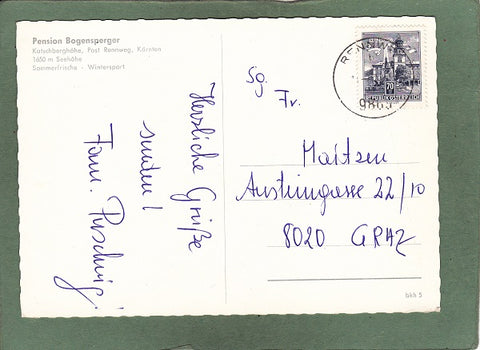 Pension Bogensperger
Katschberghöhe, Post Rennweg, Kärnten
1650 m Seehöhe
Sommerfrische - Wintersport
Herzliche Grüße
senden!
Fam.
Sg.
Fr.
Maitzen
Austeingasse 22/10
8020 GRAZ
RENNWEG
9863
70
REPUBLIK ÖSTERREICH
bkh 5